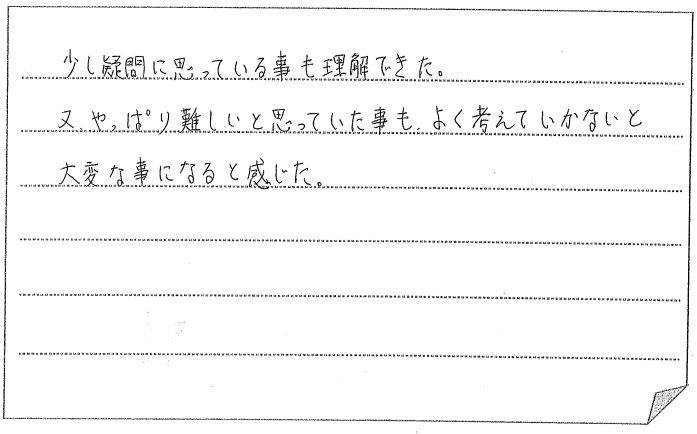 少し疑問に思っている事も理解できた。
又、やっぱり難しいと思っていた事も、よく考えていかないと
大変な事になると感じた。